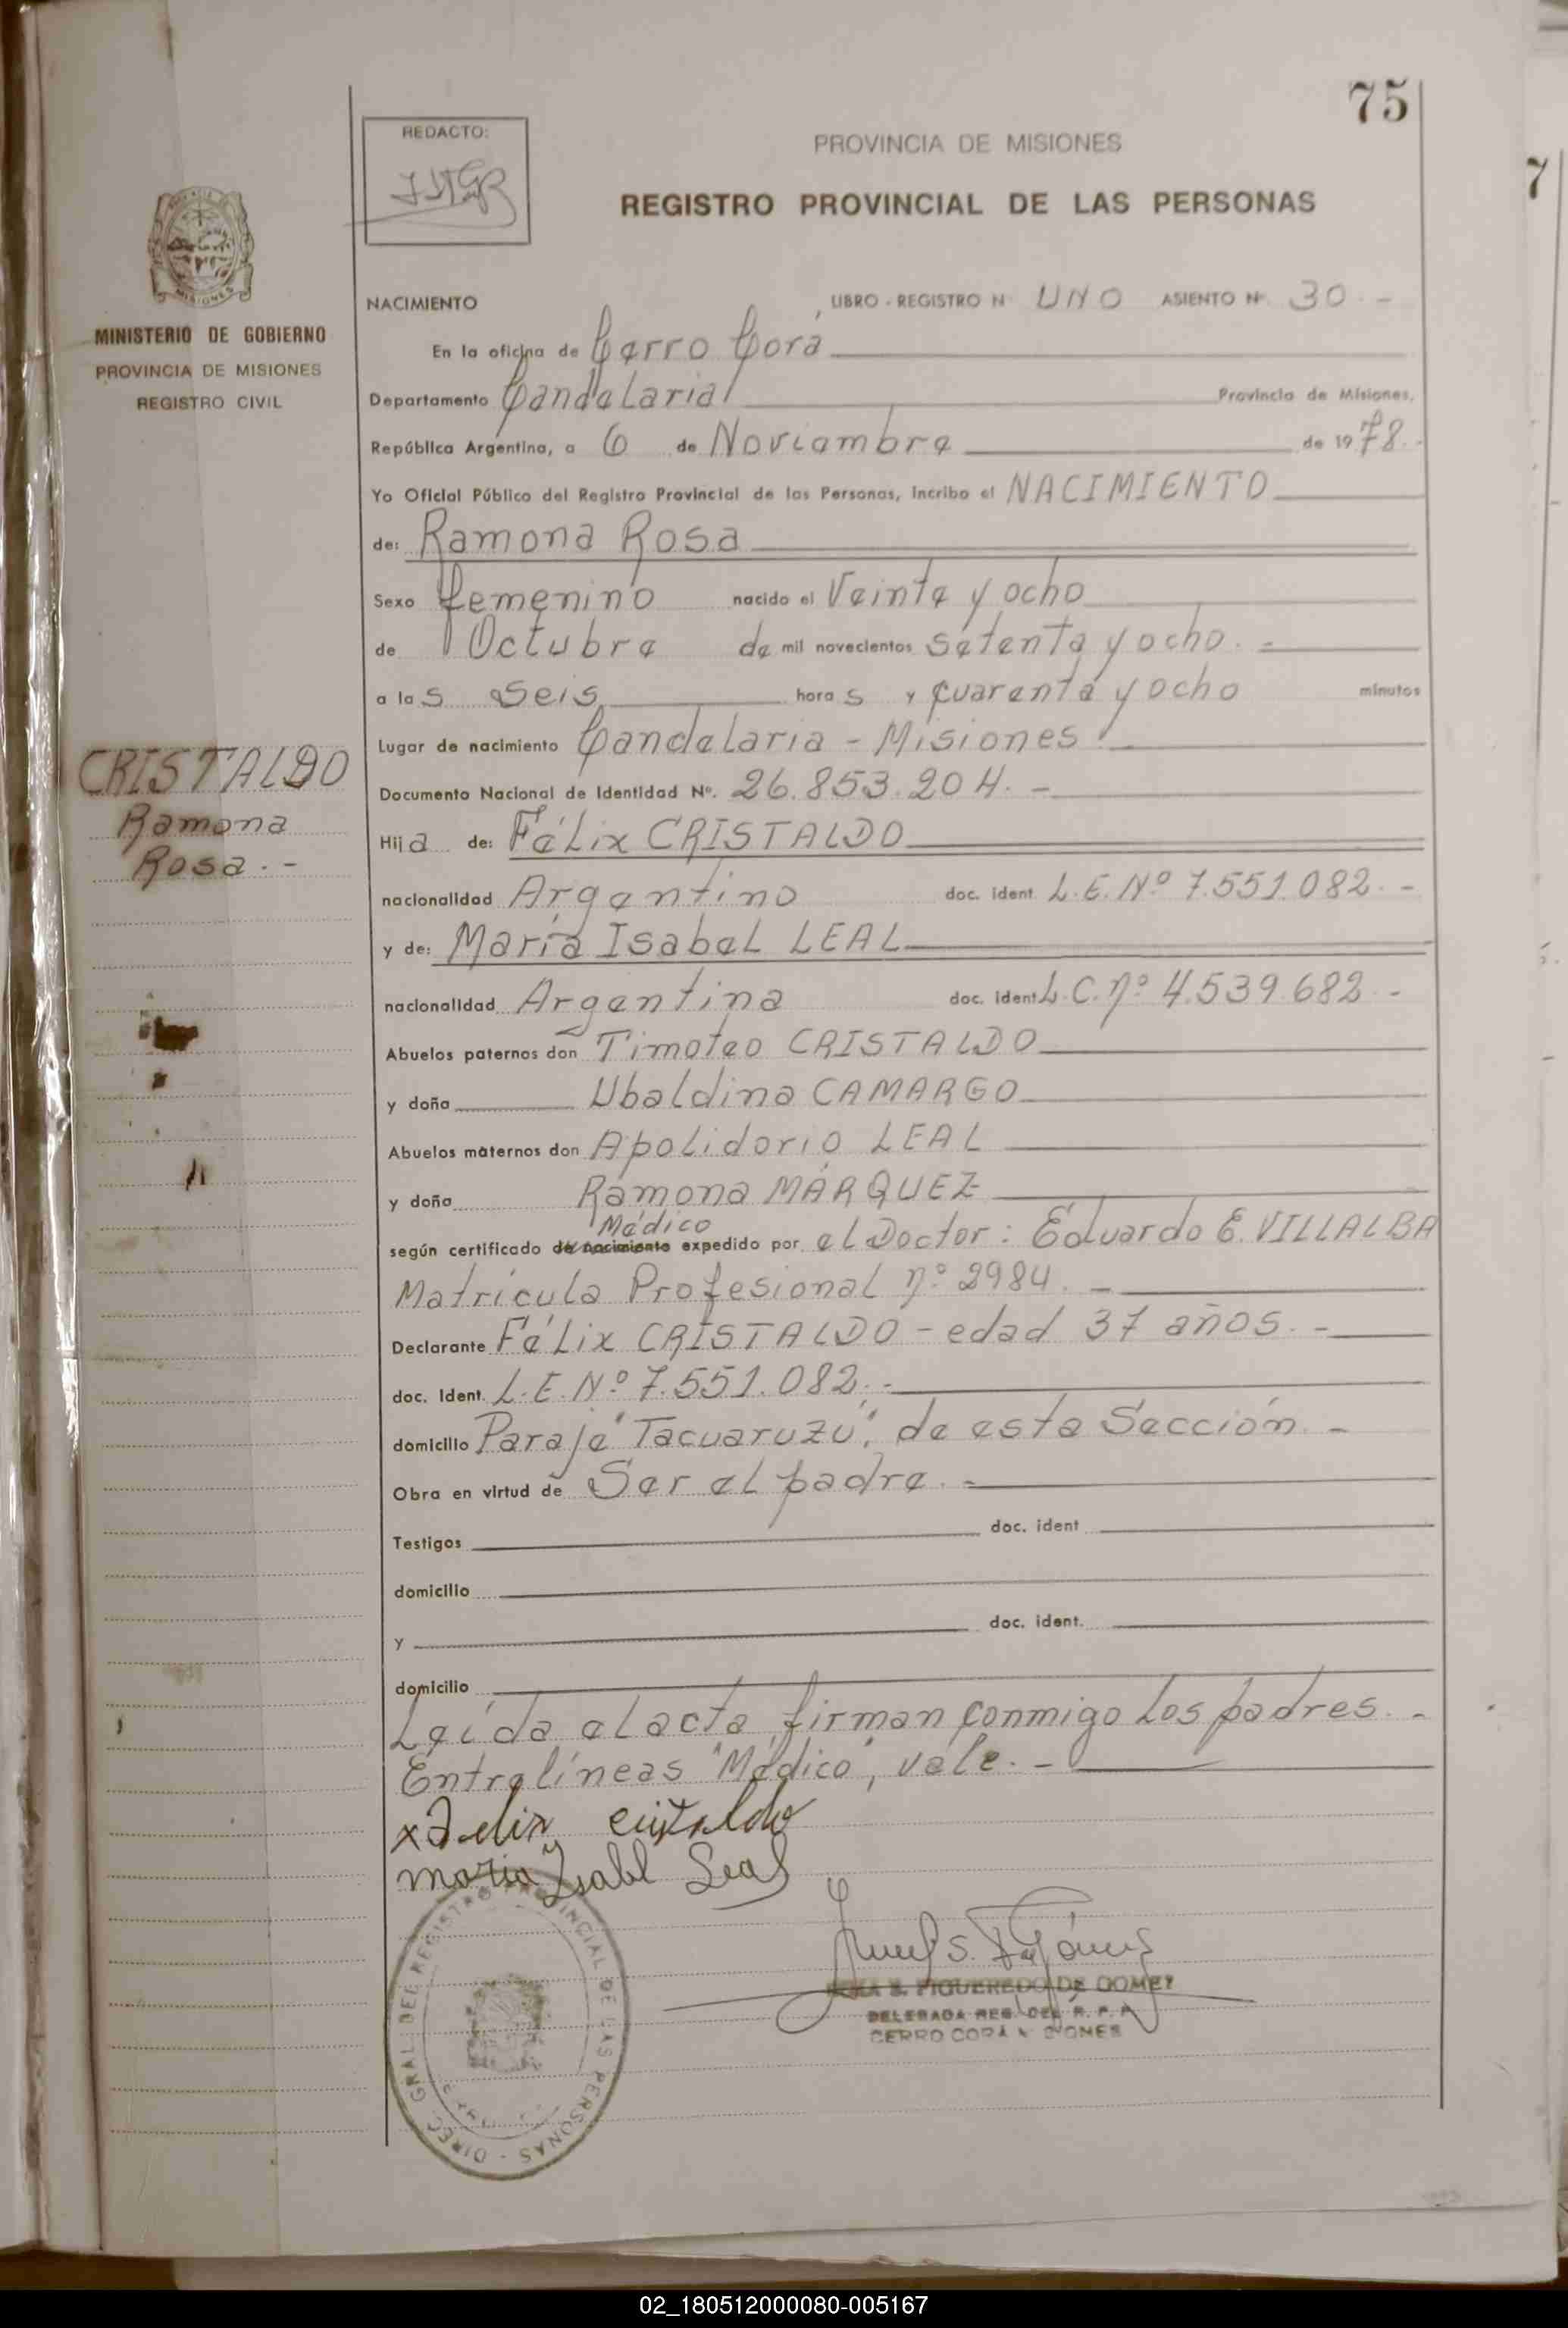 75
REDACTO:
PROVINCIA DE MISIONES
REGISTRO PROVINCIAL DE LAS PERSONAS
7
MISIONES
MINISTERIO DE GOBIERNO
PROVINCIA DE MISIONES
REGISTRO CIVIL
NACIMIENTO LIBRO - REGISTRO Nº UNO ASIENTO Nº 30.-
En la oficina de Cerro Corá
Departamento Candelaria Provincia de Misiones,
República Argentina, a 6 de Noviembre de 1978.-
Yo Oficial Público del Registro Provincial de las Personas, incribo el NACIMIENTO
de: Ramona Rosa
Sexo femenino nacido el Veinte y ocho
de Octubre de mil novecientos setenta y ocho.-
a las seis horas y cuarenta y ocho minutos
Lugar de nacimiento Candelaria - Misiones
Documento Nacional de Identidad Nº. 26.853.204.-
CRISTALDO
Ramona
Rosa.-
Hija de: Félix CRISTALDO
nacionalidad Argentino doc. ident. L.E.Nº 7.551.082.-
y de: María Isabel LEAL
nacionalidad Argentina doc. ident. L.C.nº 4.539.682.-
Abuelos paternos don Timoteo CRISTALDO
y doña Ubaldina CAMARGO
Abuelos maternos don Apolidorio LEAL
y doña Ramona MÁRQUEZ
Médico
según certificado de nacimiento expedido por el Doctor: Eduardo E. VILLALBA
Matrícula Profesional nº 2984.-
Declarante Félix CRISTALDO - edad 37 años.-
doc. Ident. L.E.Nº 7.551.082.-
domicilio Paraje "Tacuaruzú", de esta Sección.-
Obra en virtud de Ser el padre.-
Testigos doc. ident
domicilio
y doc. ident.
domicilio
Leída el acta firman conmigo los padres.-
Entrelíneas "Médico", vale.-
x Felix cristaldo
maria Isabl Leal
S. FIGUEREDO DE GOMEZ
DELEGADA REG. DEL R. P. P.
CERRO CORÁ
DIREC. GRAL. DEL REGISTRO PROVINCIAL DE LAS PERSONAS -
02_180512000080-005167